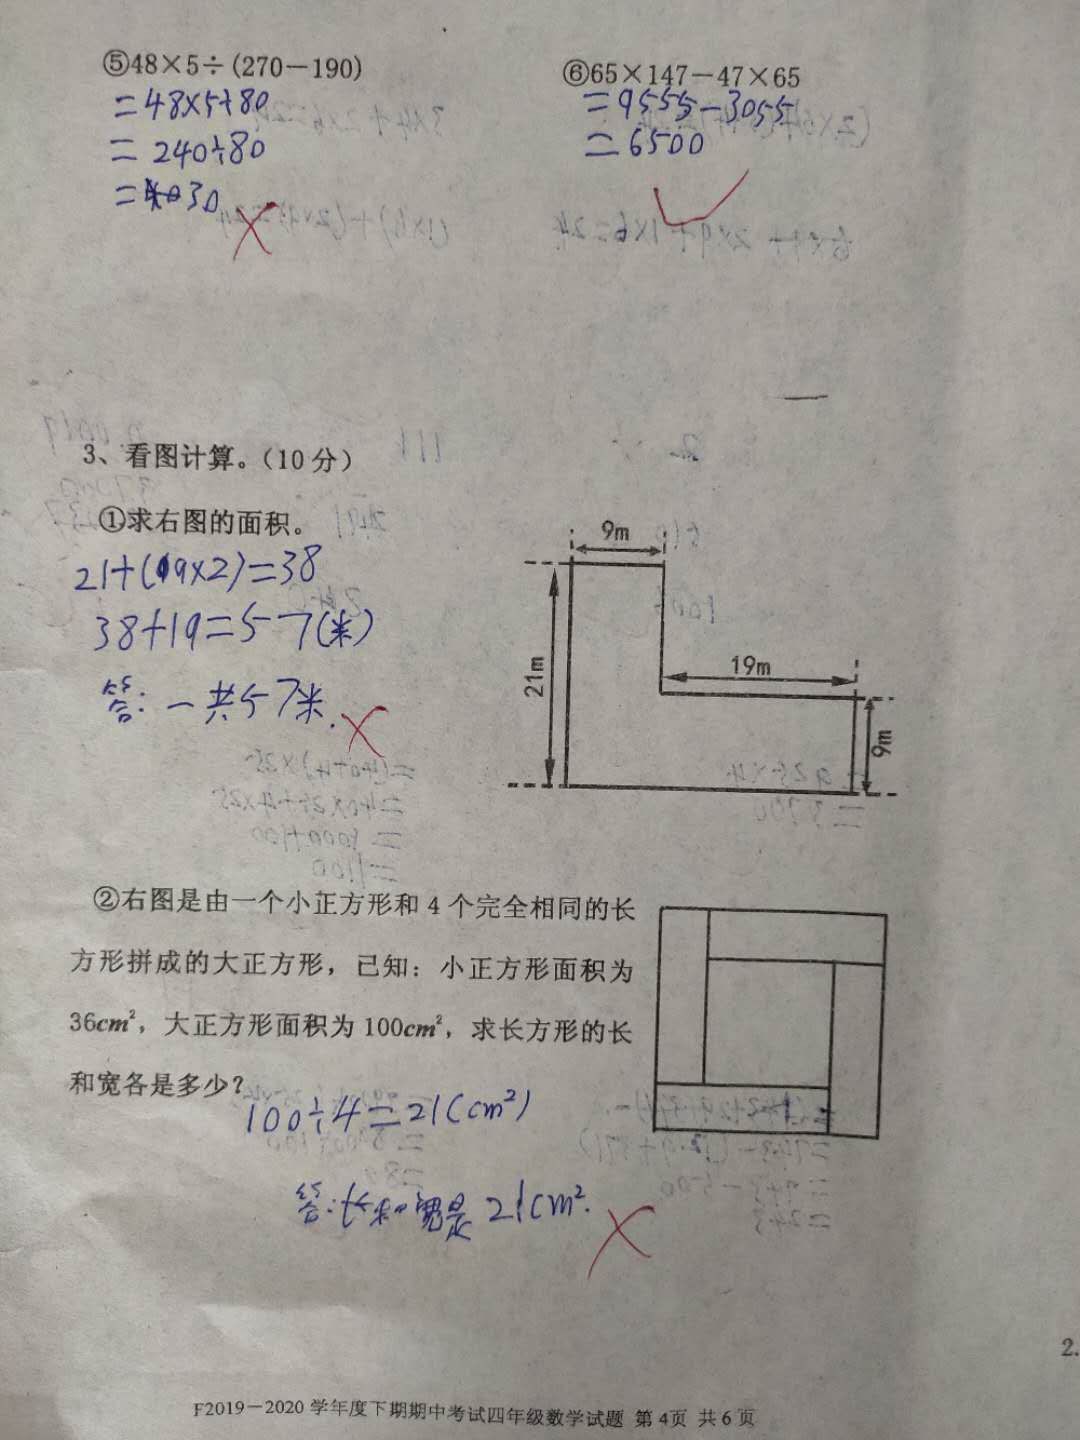 ⑤48×5÷(270－190)
⑥65×147－47×65
=48×5÷80
=9555-3055
=240÷80
=6500
=30
3、看图计算。（10分）
①求右图的面积。
9m
21+(19×2)=38
38+19=57(米)
19m
21m
答:一共57米.
9m
②右图是由一个小正方形和 4 个完全相同的长
方形拼成的大正方形，已知：小正方形面积为
36cm²，大正方形面积为 100cm²，求长方形的长
和宽各是多少？
100÷4=21(cm²)
答:长和宽是 21cm².
2.
F2019－2020 学年度下期期中考试四年级数学试题 第 4页 共 6 页